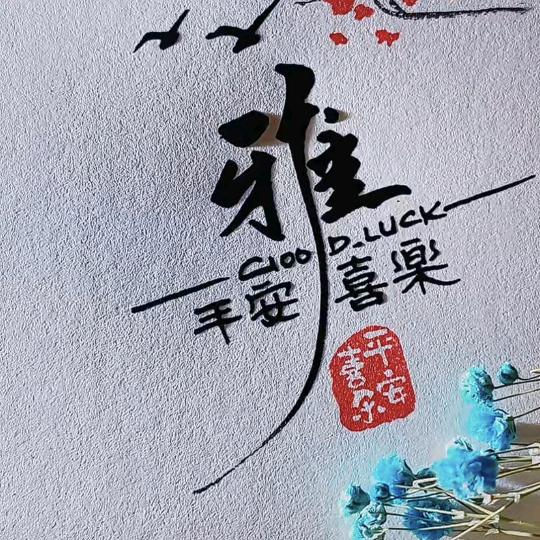 雅
GOOD_LUCK
平安喜樂
平安
喜乐